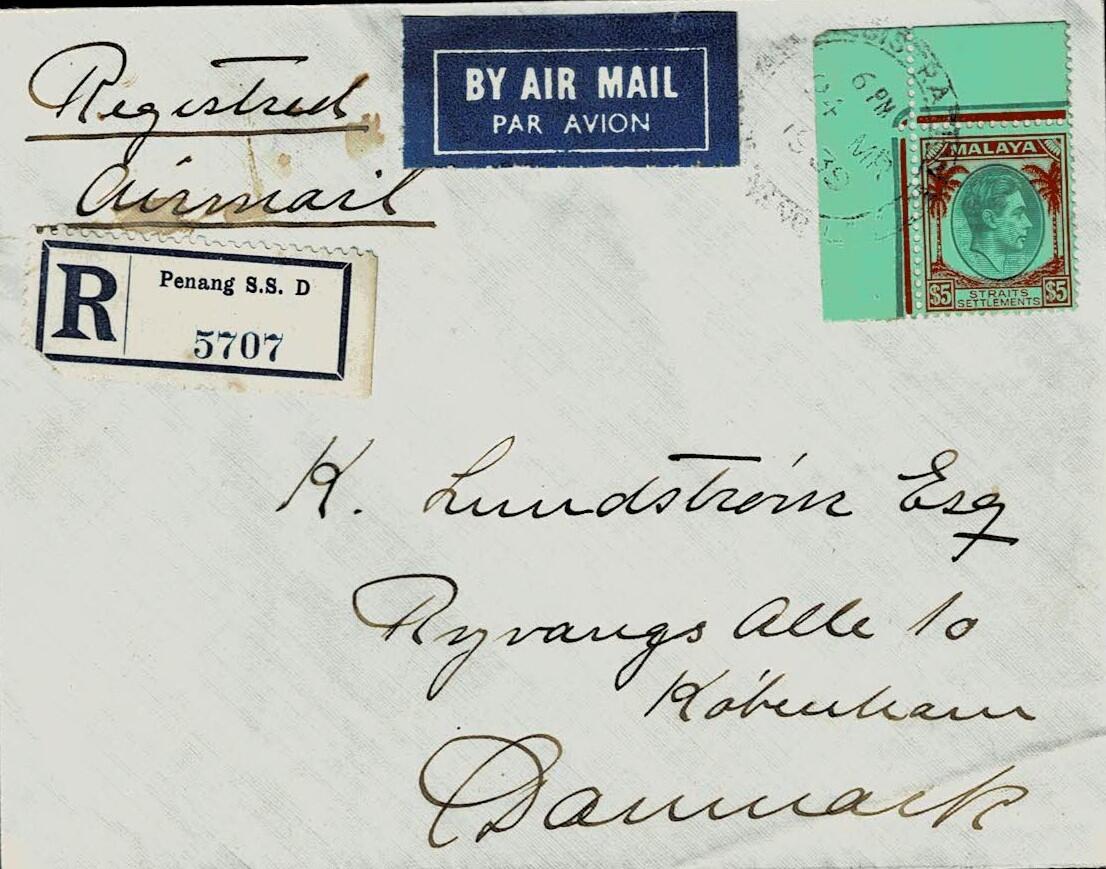 Registred
Airmail
BY AIR MAIL
PAR AVION
R
Penang S.S. D
5707
6 PM
MR
MALAYA
$5
STRAITS
SETTLEMENTS
$5
K. Lundström Esq
Ryvangs Alle 10
København
Danmark